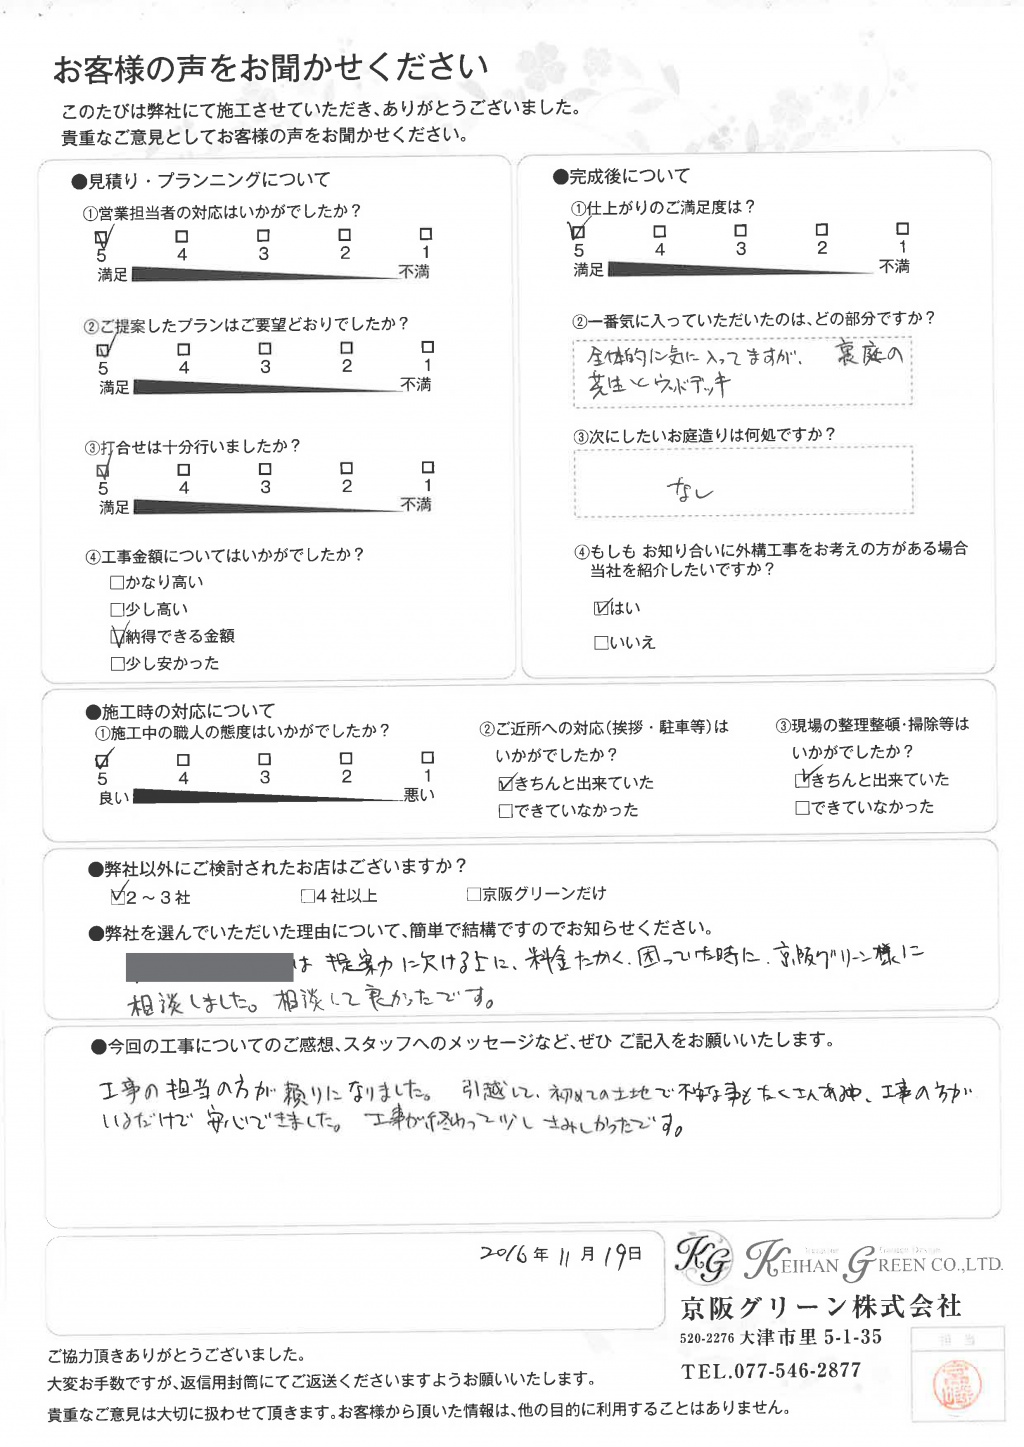 お客様の声をお聞かせください
このたびは弊社にて施工させていただき、ありがとうございました。
貴重なご意見としてお客様の声をお聞かせください。
●見積り・プランニングについて
①営業担当者の対応はいかがでしたか？
5 4 3 2 1
満足 不満
②ご提案したプランはご要望どおりでしたか？
5 4 3 2 1
満足 不満
③打合せは十分行いましたか？
5 4 3 2 1
満足 不満
④工事金額についてはいかがでしたか？
□かなり高い
□少し高い
☑納得できる金額
□少し安かった
●完成後について
①仕上がりのご満足度は？
5 4 3 2 1
満足 不満
②一番気に入っていただいたのは、どの部分ですか？
全体的に気に入ってますが、 裏庭の
芝生とウッドデッキ
③次にしたいお庭造りは何処ですか？
なし
④もしも お知り合いに外構工事をお考えの方がある場合
当社を紹介したいですか？
☑はい
□いいえ
●施工時の対応について
①施工中の職人の態度はいかがでしたか？
5 4 3 2 1
良い 悪い
②ご近所への対応（挨拶・駐車等）は
いかがでしたか？
☑きちんと出来ていた
□できていなかった
③現場の整理整頓・掃除等は
いかがでしたか？
☑きちんと出来ていた
□できていなかった
●弊社以外にご検討されたお店はございますか？
☑2～3社 □4社以上 □京阪グリーンだけ
●弊社を選んでいただいた理由について、簡単で結構ですのでお知らせください。
は 提案力に欠ける上に、料金たかく、困っていた時に、京阪グリーン様に
相談しました。相談して良かったです。
●今回の工事についてのご感想、スタッフへのメッセージなど、ぜひ ご記入をお願いいたします。
工事の担当の方が頼りになりました。 引越して、初めての土地で不安な事もたくさんある中、工事の方が
いるだけで安心できました。 工事が終わって少しさみしかったです。
2016年 11月 19日
KG KEIHAN GREEN CO.,LTD.
京阪グリーン株式会社
520-2276 大津市里 5-1-35
TEL.077-546-2877
担当
ご協力頂きありがとうございました。
大変お手数ですが、返信用封筒にてご返送くださいますようお願いいたします。
貴重なご意見は大切に扱わせて頂きます。お客様から頂いた情報は、他の目的に利用することはありません。